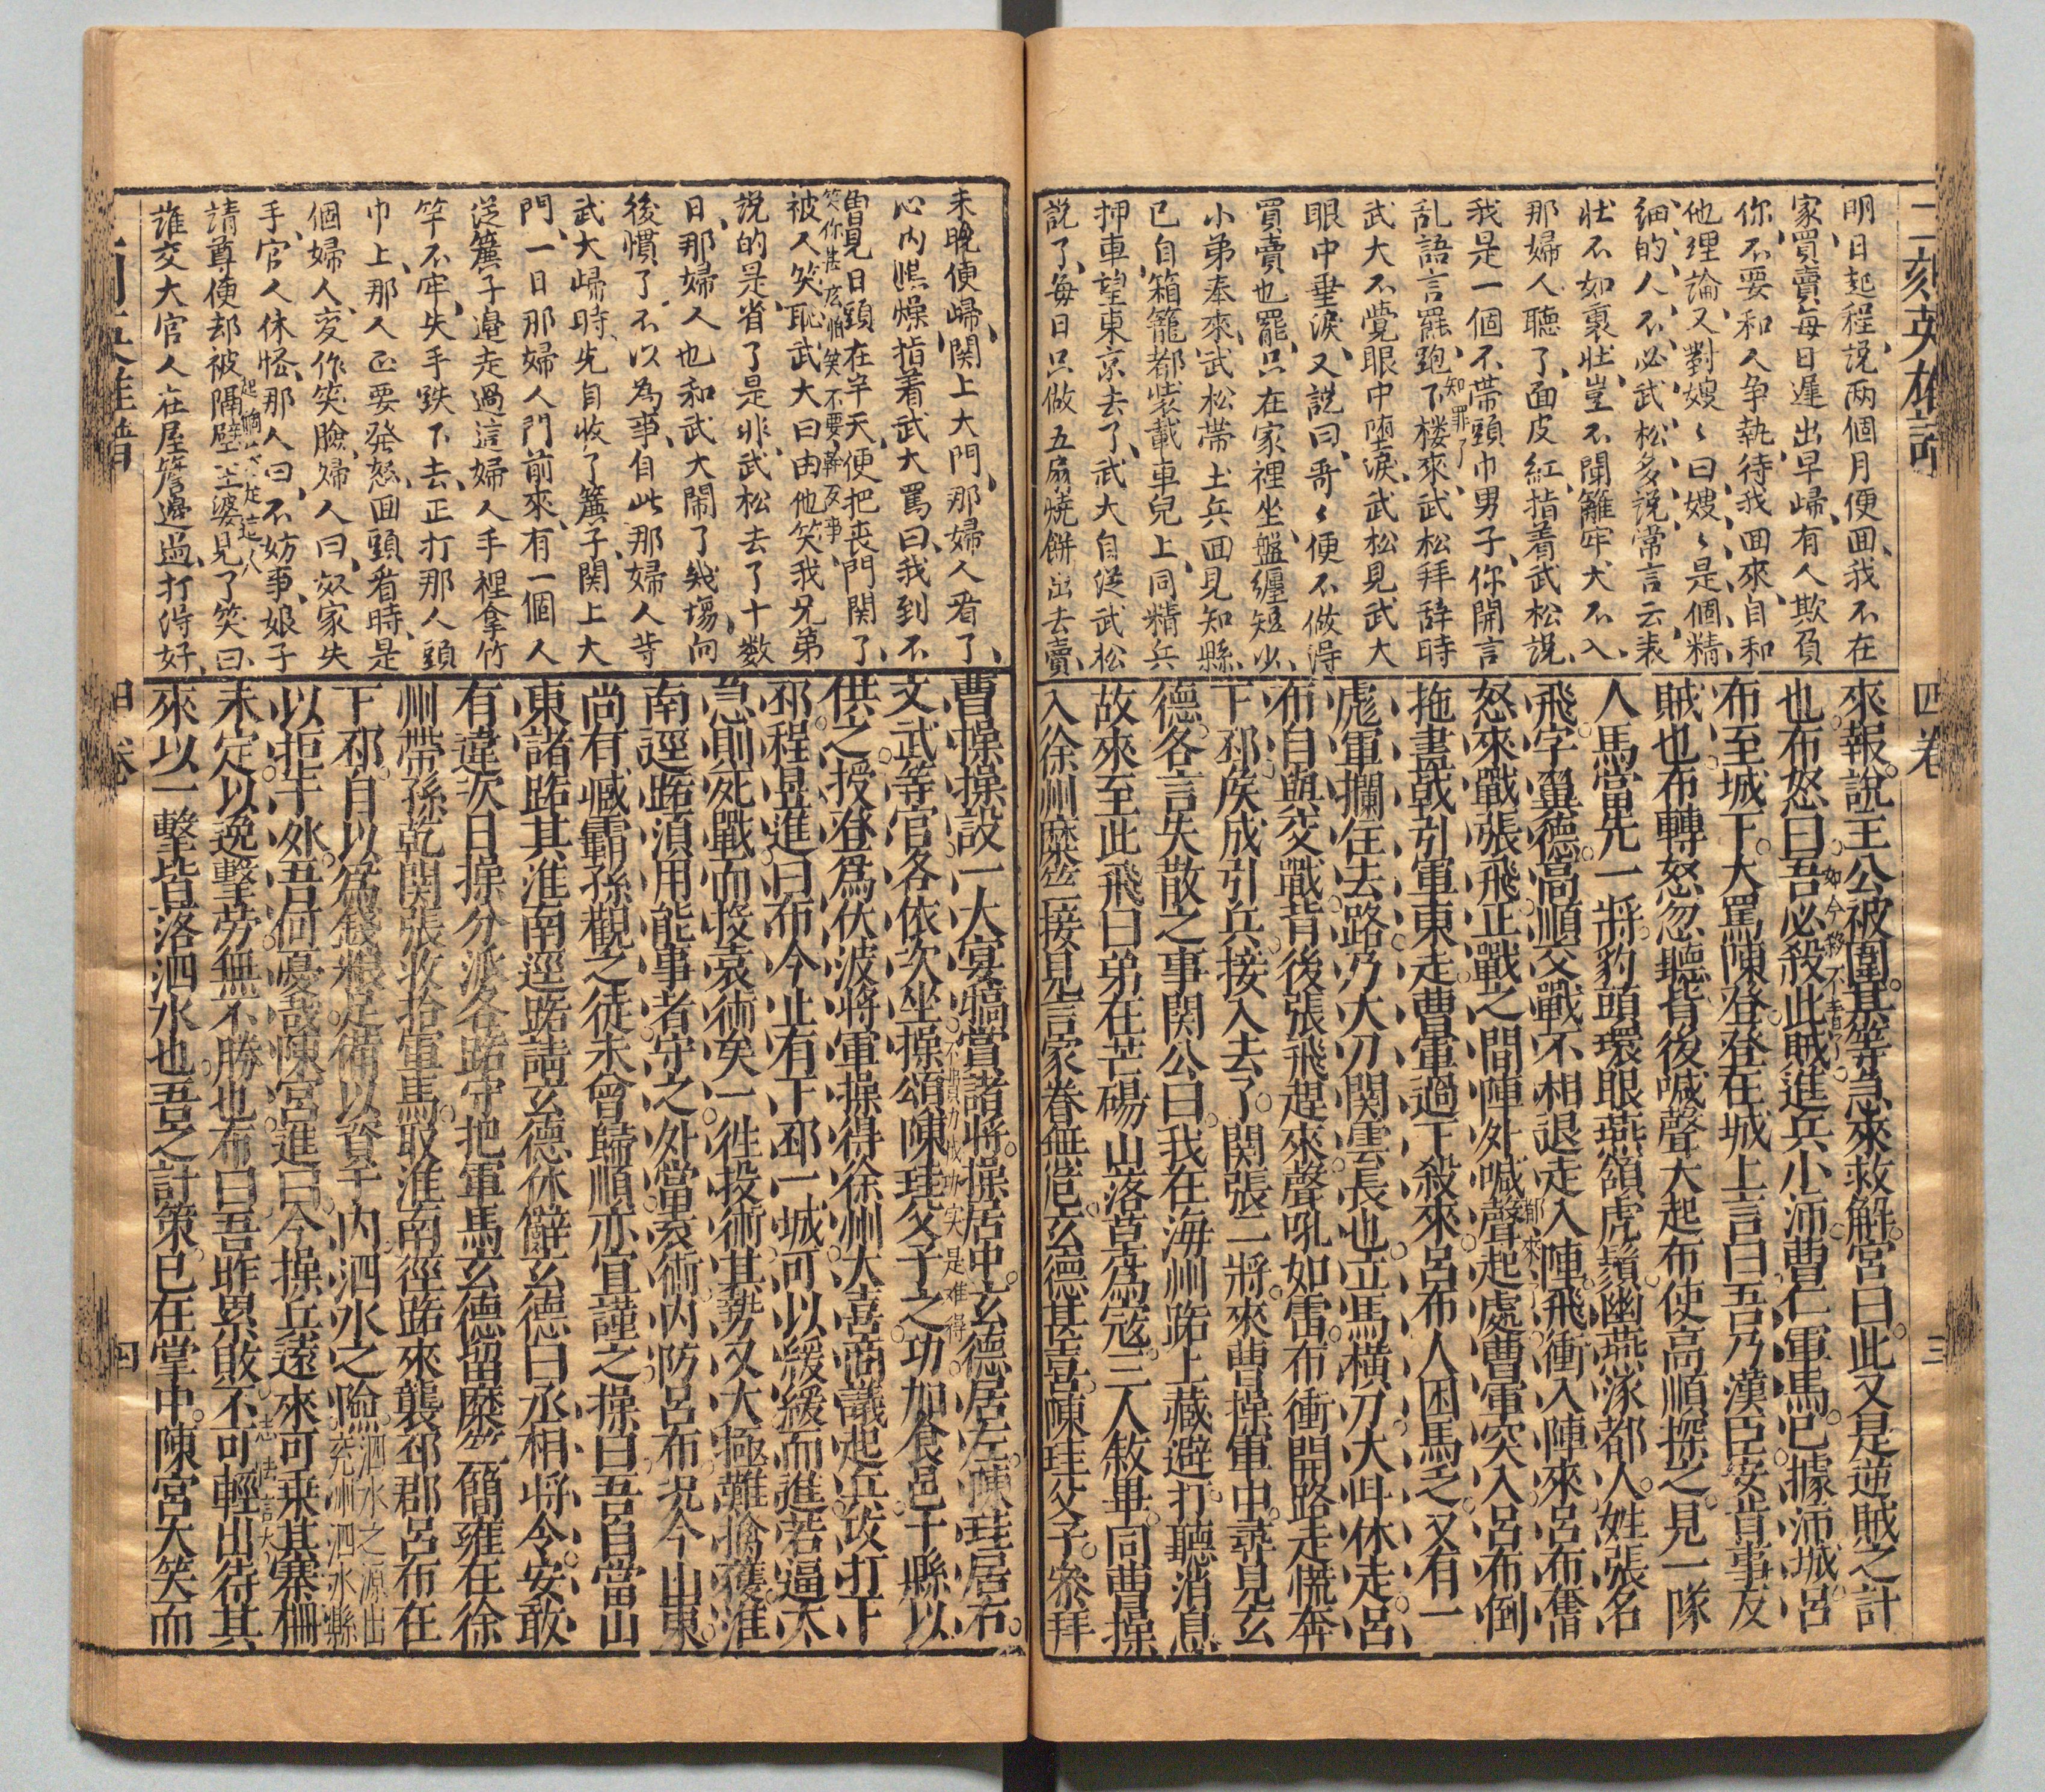 二刻英雄譜
四卷
三
明日起程、說两個月便囬、我不在
家買賣每日遲出早歸、有人欺負
你不要和人争執、待我囬來、自和
他理論、又對嫂〻曰嫂〻是個精
細的人、不必武松多說、常言云表
壯不如裏壯、豈不聞籬牢犬不入
那婦人聽了、面皮紅、指着武松說、
我是一個不带頭巾男子、你開言
乱語言罷、跑下楼來、武松拜辞時
知罪了
武大不覺眼中堕淚、武松見武大
眼中垂淚、又說曰、哥〻便不做得
買賣也罷、只在家裡坐、盤纏短少、
小弟奉來、武松带土兵囬見知縣、
已自箱籠都裝載車兒上、同精兵
押車、望東京去了、武大自從武松
說了、每日只做五扇燒餅出去賣、
來報說王公被圍甚等急來救解宮曰此又是逆賊之計
也布怒曰吾必殺此賊進兵小沛曹仁軍馬已據沛城呂
布至城下大罵陳登登在城上言曰吾乃漢臣安肯事友
賊也布轉怒忽聽背後喊聲大起布使高順探之見一隊
人馬當先一將豹頭環眼燕頷虎鬚幽燕涿都人姓張名
飛字翼德高順交戰不相退走入陣飛衝入陣來呂布奮
怒來戰張飛正戰之間陣外喊聲起處曹軍突入呂布倒
拖畫戟引軍東走曹軍過下殺來呂布人困馬乏又有一
彪軍攔住去路乃大刀関雲長也立馬横刀大叫休走呂
布自與交戰背後張飛趕來聲吼如雷布衝開路走慌奔
下邳侯成引兵接入去了関張二將來曹操軍中尋見玄
德各言失散之事関公曰我在海州路上藏避打聽消息
故來至此飛曰弟在芒碭山落草為寇三人敘畢同曹操
入徐州糜竺接見言家眷無恙玄德甚喜陳珪父子參拜
未晚便歸、関上大門、那婦人看了、
心内焦燥、指着武大罵曰、我到不
曾見日頭在半天、便把丧門関了、
笑你甚広怕笑不要幹歹事
被人笑恥、武大曰由他笑、我兄弟
說的是、省了是非、武松去了十數
日、那婦人也和武大鬧了幾塲、向
後慣了、不以為事、自此那婦人等
武大歸時、先自收了簾子、関上大
門、一日那婦人門前來、有一個人
從簾子邉走過、這婦人手裡拿竹
竿不牢、失手跌下去、正打那人頭
巾上、那人正要発怒、囬頭看時、是
個婦人、变作笑臉、婦人曰、奴家失
手、官人休怪、那人曰、不妨事、娘子
請尊便、却被隔壁王婆見了、笑曰、
誰交大官人在屋簷邉過、打得好、
曹操操設一大宴犒賞諸將操居中玄德居左陳珪居右
文武等官各依次坐操頌陳珪父子之功加食邑十縣以
供之授登為伏波將軍操得徐州大喜商議起兵攻打下
邳程昱進曰布今止有下邳一城可以緩緩而進若逼太
急則死戰而投袁術矣一徃投術其勢又大極難擒獲淮
南逕路湏用能事者守之外當袁術内防呂布况今山東
尚有臧霸孫觀之徒未曾歸順亦宜謹之操曰吾自當山
東諸路其淮南逕路請玄德休辭玄德曰丞相將令安敢
有違次日操分派各路守把軍馬玄德留糜竺簡雍在徐
州帶孫乾関張收拾軍馬取淮南徑路來襲邳郡呂布在
下邳自以為錢粮足備以資于内泗水之險
泗水之源出
兖州泗水縣
以拒于外吾何憂哉陳宮進曰今操兵遠來可乗其寨柵
未定以逸擊勞無不勝也布曰吾昨累敗不可輕出待其
來以一擊皆落泗水也吾之計策已在掌中陳宮大笑而
四卷
四